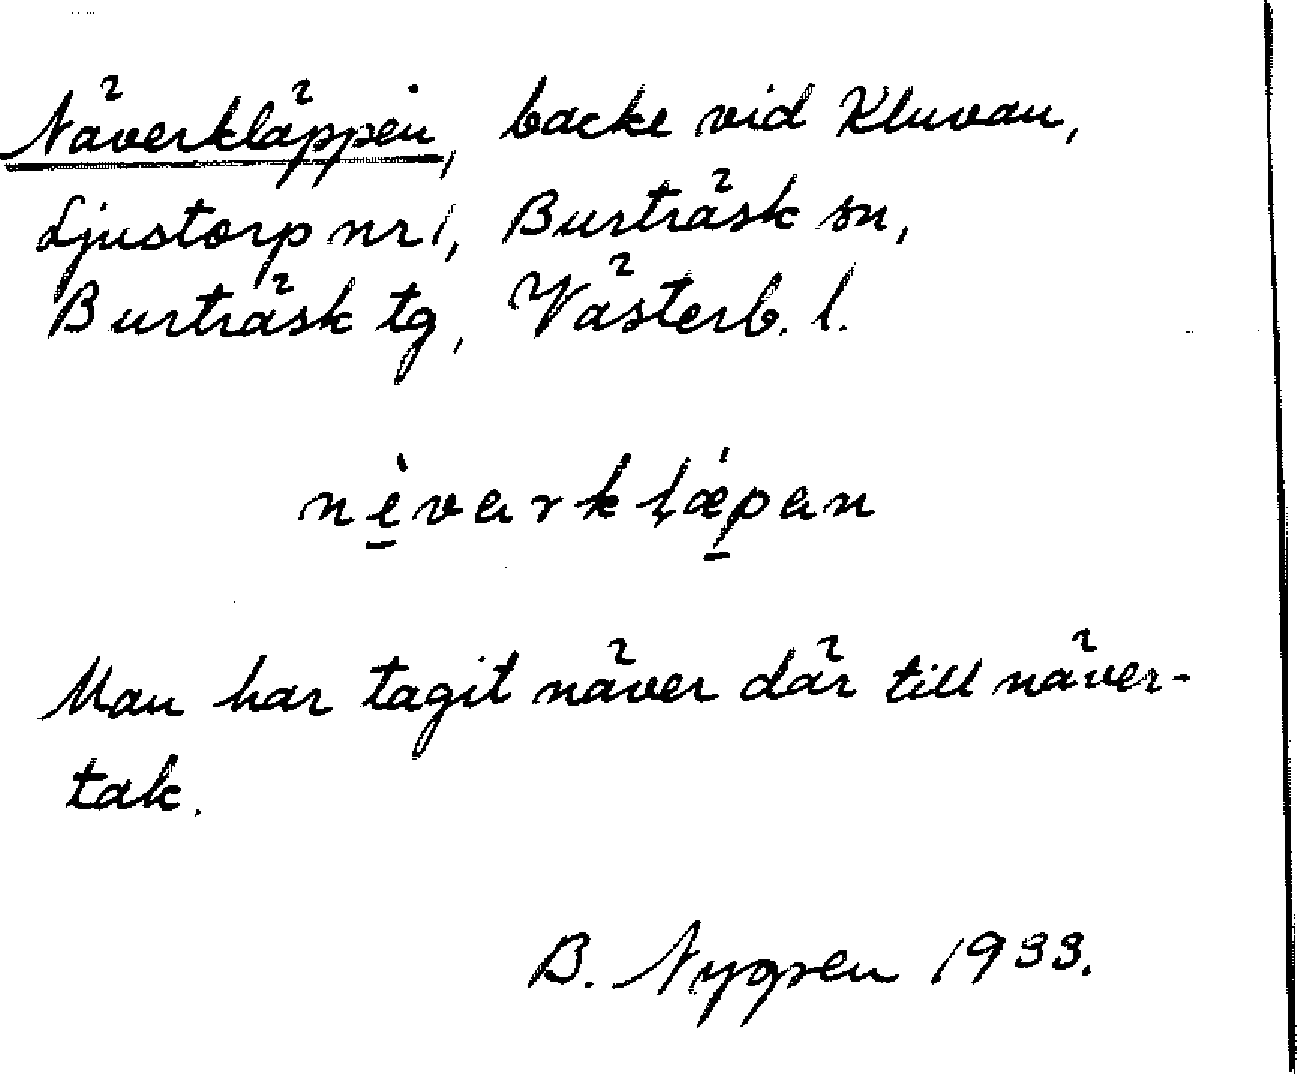 Näverkläppen, backe vid Kluvan,
Ljustorp nr 1, Burträsk sn,
Burträsk tg, Västerb. l.
nè̱varkḷǽ̱pan
Man har tagit näver där till näver-
tak.
B. Nygren 1933.